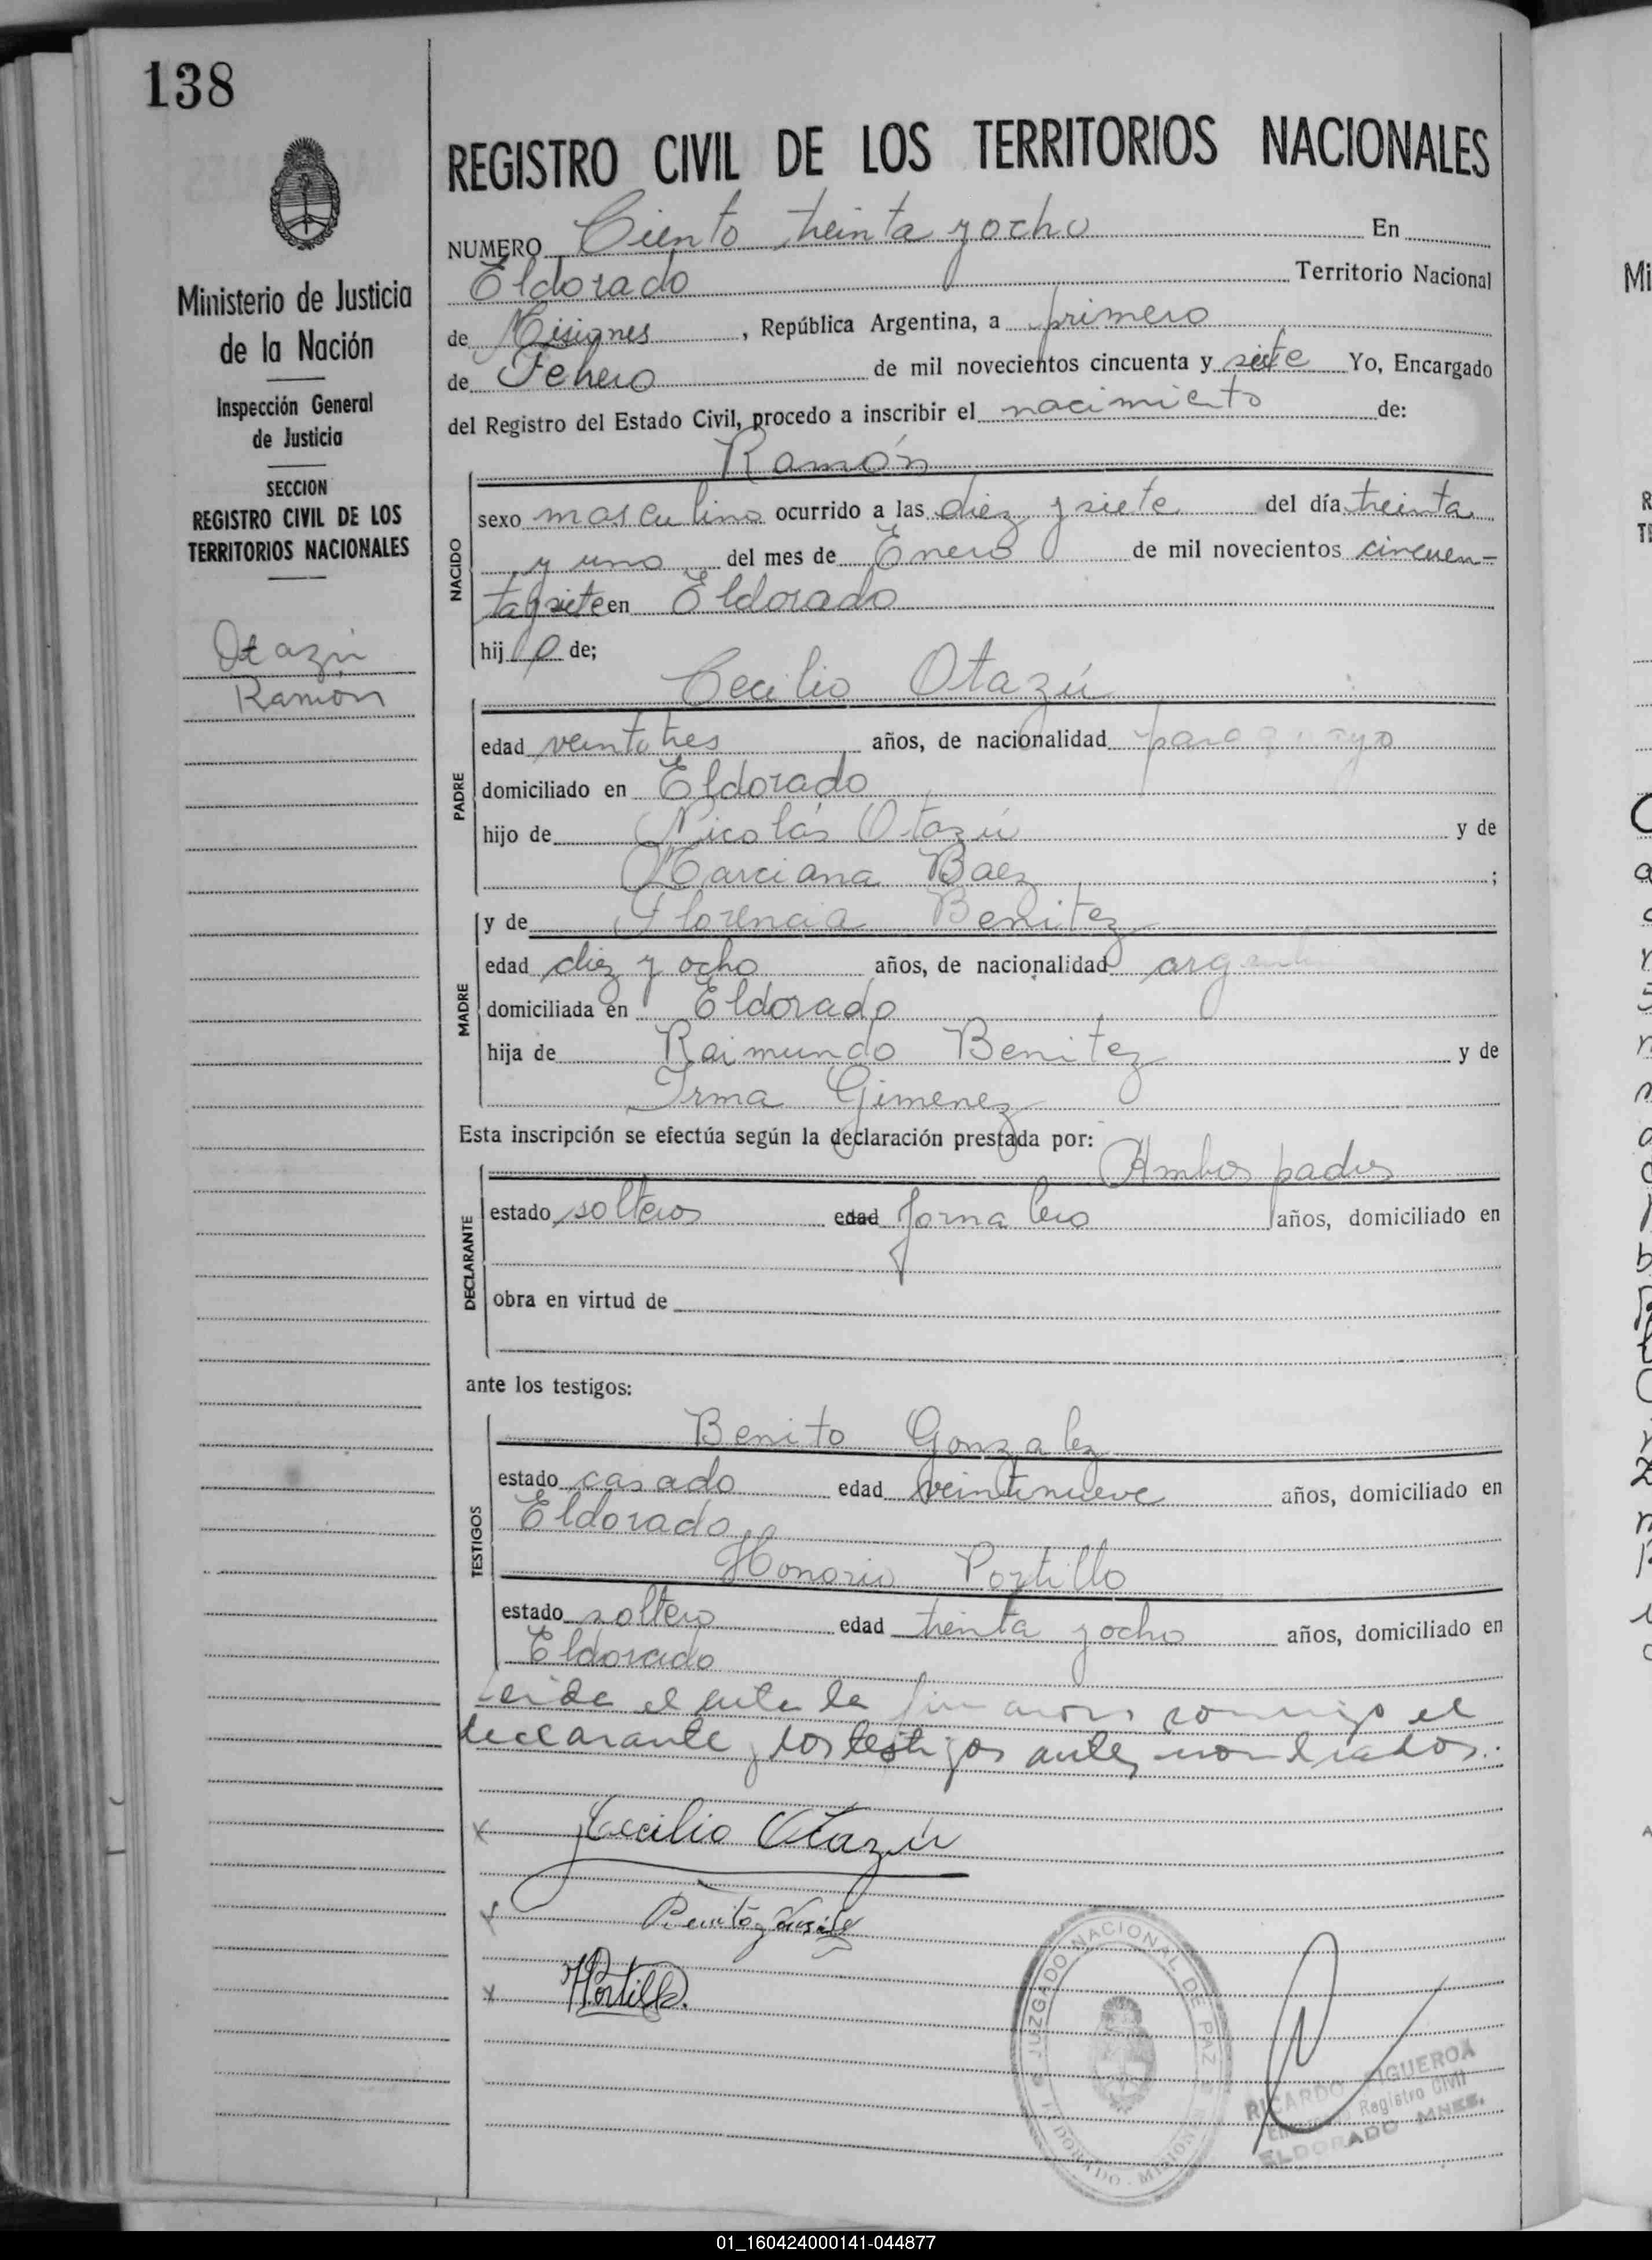 138
Ministerio de Justicia
de la Nación
Inspección General
de Justicia
SECCION
REGISTRO CIVIL DE LOS
TERRITORIOS NACIONALES
Otazú
Ramón
REGISTRO CIVIL DE LOS TERRITORIOS NACIONALES
NUMERO Ciento treinta y ocho En
Eldorado Territorio Nacional
de Misiones, República Argentina, a primero
de Febrero de mil novecientos cincuenta y siete Yo, Encargado
del Registro del Estado Civil, procedo a inscribir el nacimiento de:
Ramón
NACIDO
sexo masculino ocurrido a las diez y siete del día treinta
y uno del mes de Enero de mil novecientos cincuen=
ta y siete en Eldorado
hijo de;
Cecilio Otazú
PADRE
edad veintitres años, de nacionalidad paraguayo
domiciliado en Eldorado
hijo de Nicolás Otazú y de
Marciana Baez ;
y de Florencia Benitez
MADRE
edad diez y ocho años, de nacionalidad argentina
domiciliada en Eldorado
hija de Raimundo Benitez y de
Irma Gimenez
Esta inscripción se efectúa según la declaración prestada por:
Ambos padres
DECLARANTE
estado solteros edad Jornalero años, domiciliado en
obra en virtud de
ante los testigos:
TESTIGOS
Benito Gonzalez
estado casado edad veintinueve años, domiciliado en
Eldorado
Honorio Portillo
estado soltero edad treinta y ocho años, domiciliado en
Eldorado
Leida el acta la firmaron conmigo el
declarante y los testigos antes nombrados.
x Cecilio Otazú
x Benito Gonzalez
x HPortillo.
JUZGADO NACIONAL DE PAZ
ELDORADO - MISIONES
RICARDO FIGUEROA
Encargado Registro Civil
ELDORADO MNES.
01_160424000141-044877